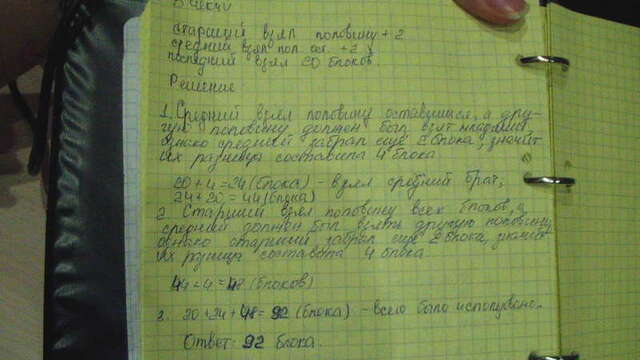 старший взял половину + 2
средний взял пол ост. + 2
последний взял 20 блоков.
Решение
1. Средний взял половину оставшихся, а дру-
гую половину должен был взять младший
однако средний забрал ещё 2 блока, значит
их разница составила 4 блока.
20 + 4 = 24 (блока) - взял средний брат,
24 + 20 = 44 (блока)
2. Старший взял половину всех блоков, а
средний должен был взять другую половину
однако старший забрал ещё 2 блока, значит
их разница составила 4 блока
44 + 4 = 48 (блоков)
3. 20 + 24 + 48 = 92 (блока) - всего было
Ответ: 92 блока.